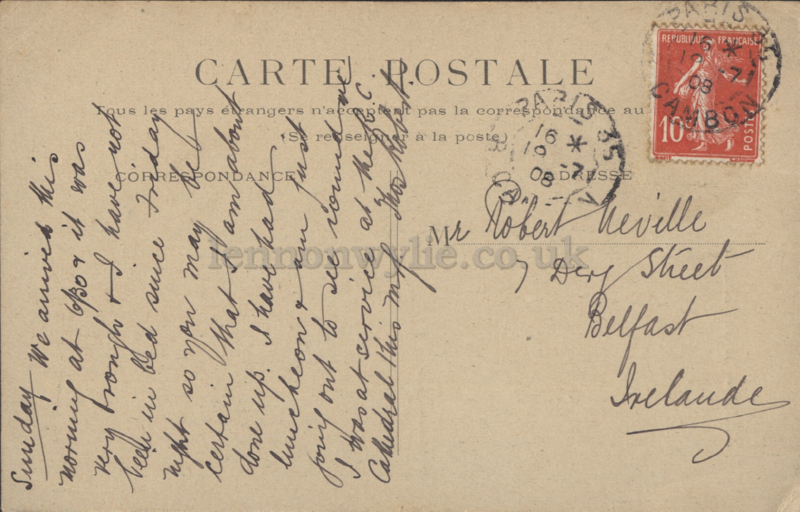 CARTE POSTALE
Tous les pays étrangers n'acceptent pas la correspondance au
(Se renseigner à la poste)
CORRESPONDANCE
ADRESSE
REPUBLIQUE FRANÇAISE
10
POSTES
PARIS 35
16 *
-7
08
CAMBON
PARIS 35
16 *
-7
08
Mr Robert Neville
7 Derg Street
Belfast
Irelande
Sunday We arrived this
morning at 6/30 & it was
very rough & I have not
been in bed since Friday
night so you may be
certain that I am about
done up. I have had
luncheon & am just
going out to see round me
I was at service at the R.C.
Cathedral this mg. Robert.
lennonwylie.co.uk